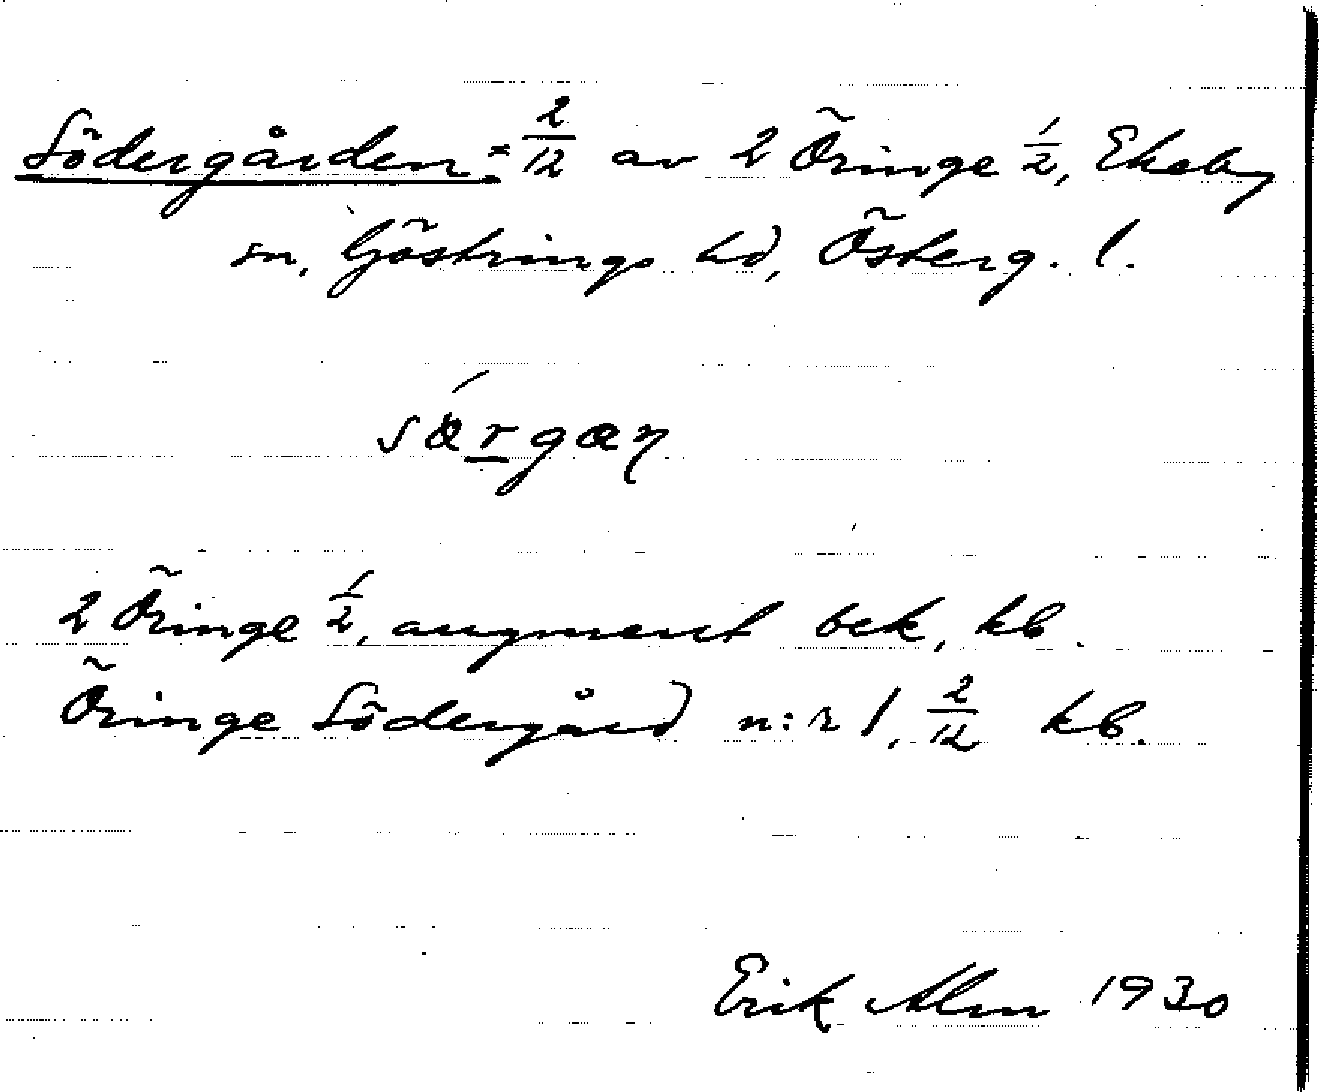 Södergården = 2/12 av 2 Öringe 1/2, Ekeby
sn, Göstrings hd, Österg. l.
2 Öringe 1/2, augment bek, kb.
Öringe Södergård n:r 1, 2/12 kb.
Erik Alm 1930